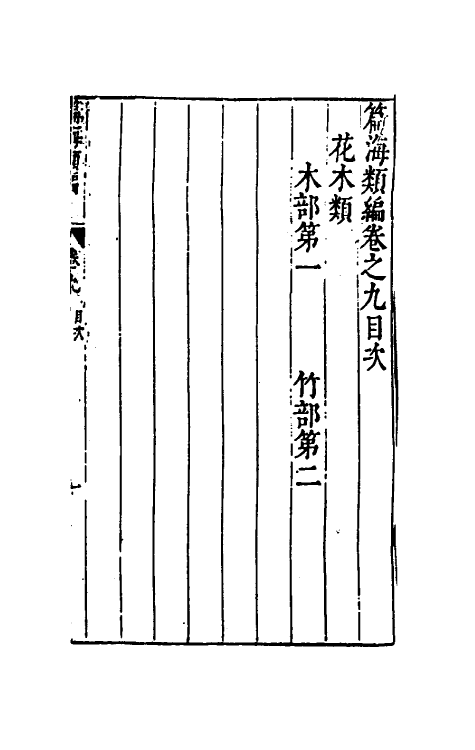 篇海類編卷之九目次
花木類
木部第一　竹部第二
目次